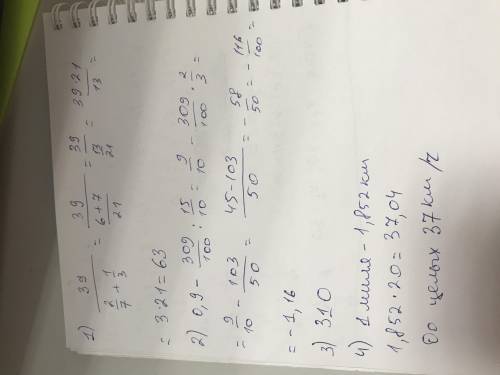 1) 39 / (2/7 + 1/3) = 39 / ((6+7)/21) = 39 / (13/21) = 39·21 / 13 =
= 3·21 = 63
2) 0,9 - 309/100 : 15/10 = 9/10 - 309/100 · 2/3 =
= 9/10 - 103/50 = (45-103)/50 = - 58/50 = - 116/100 =
= -1,16
3) 310
4) 1 миля - 1,852 км
1,852·20 = 37,04
До целых 37 км/ч